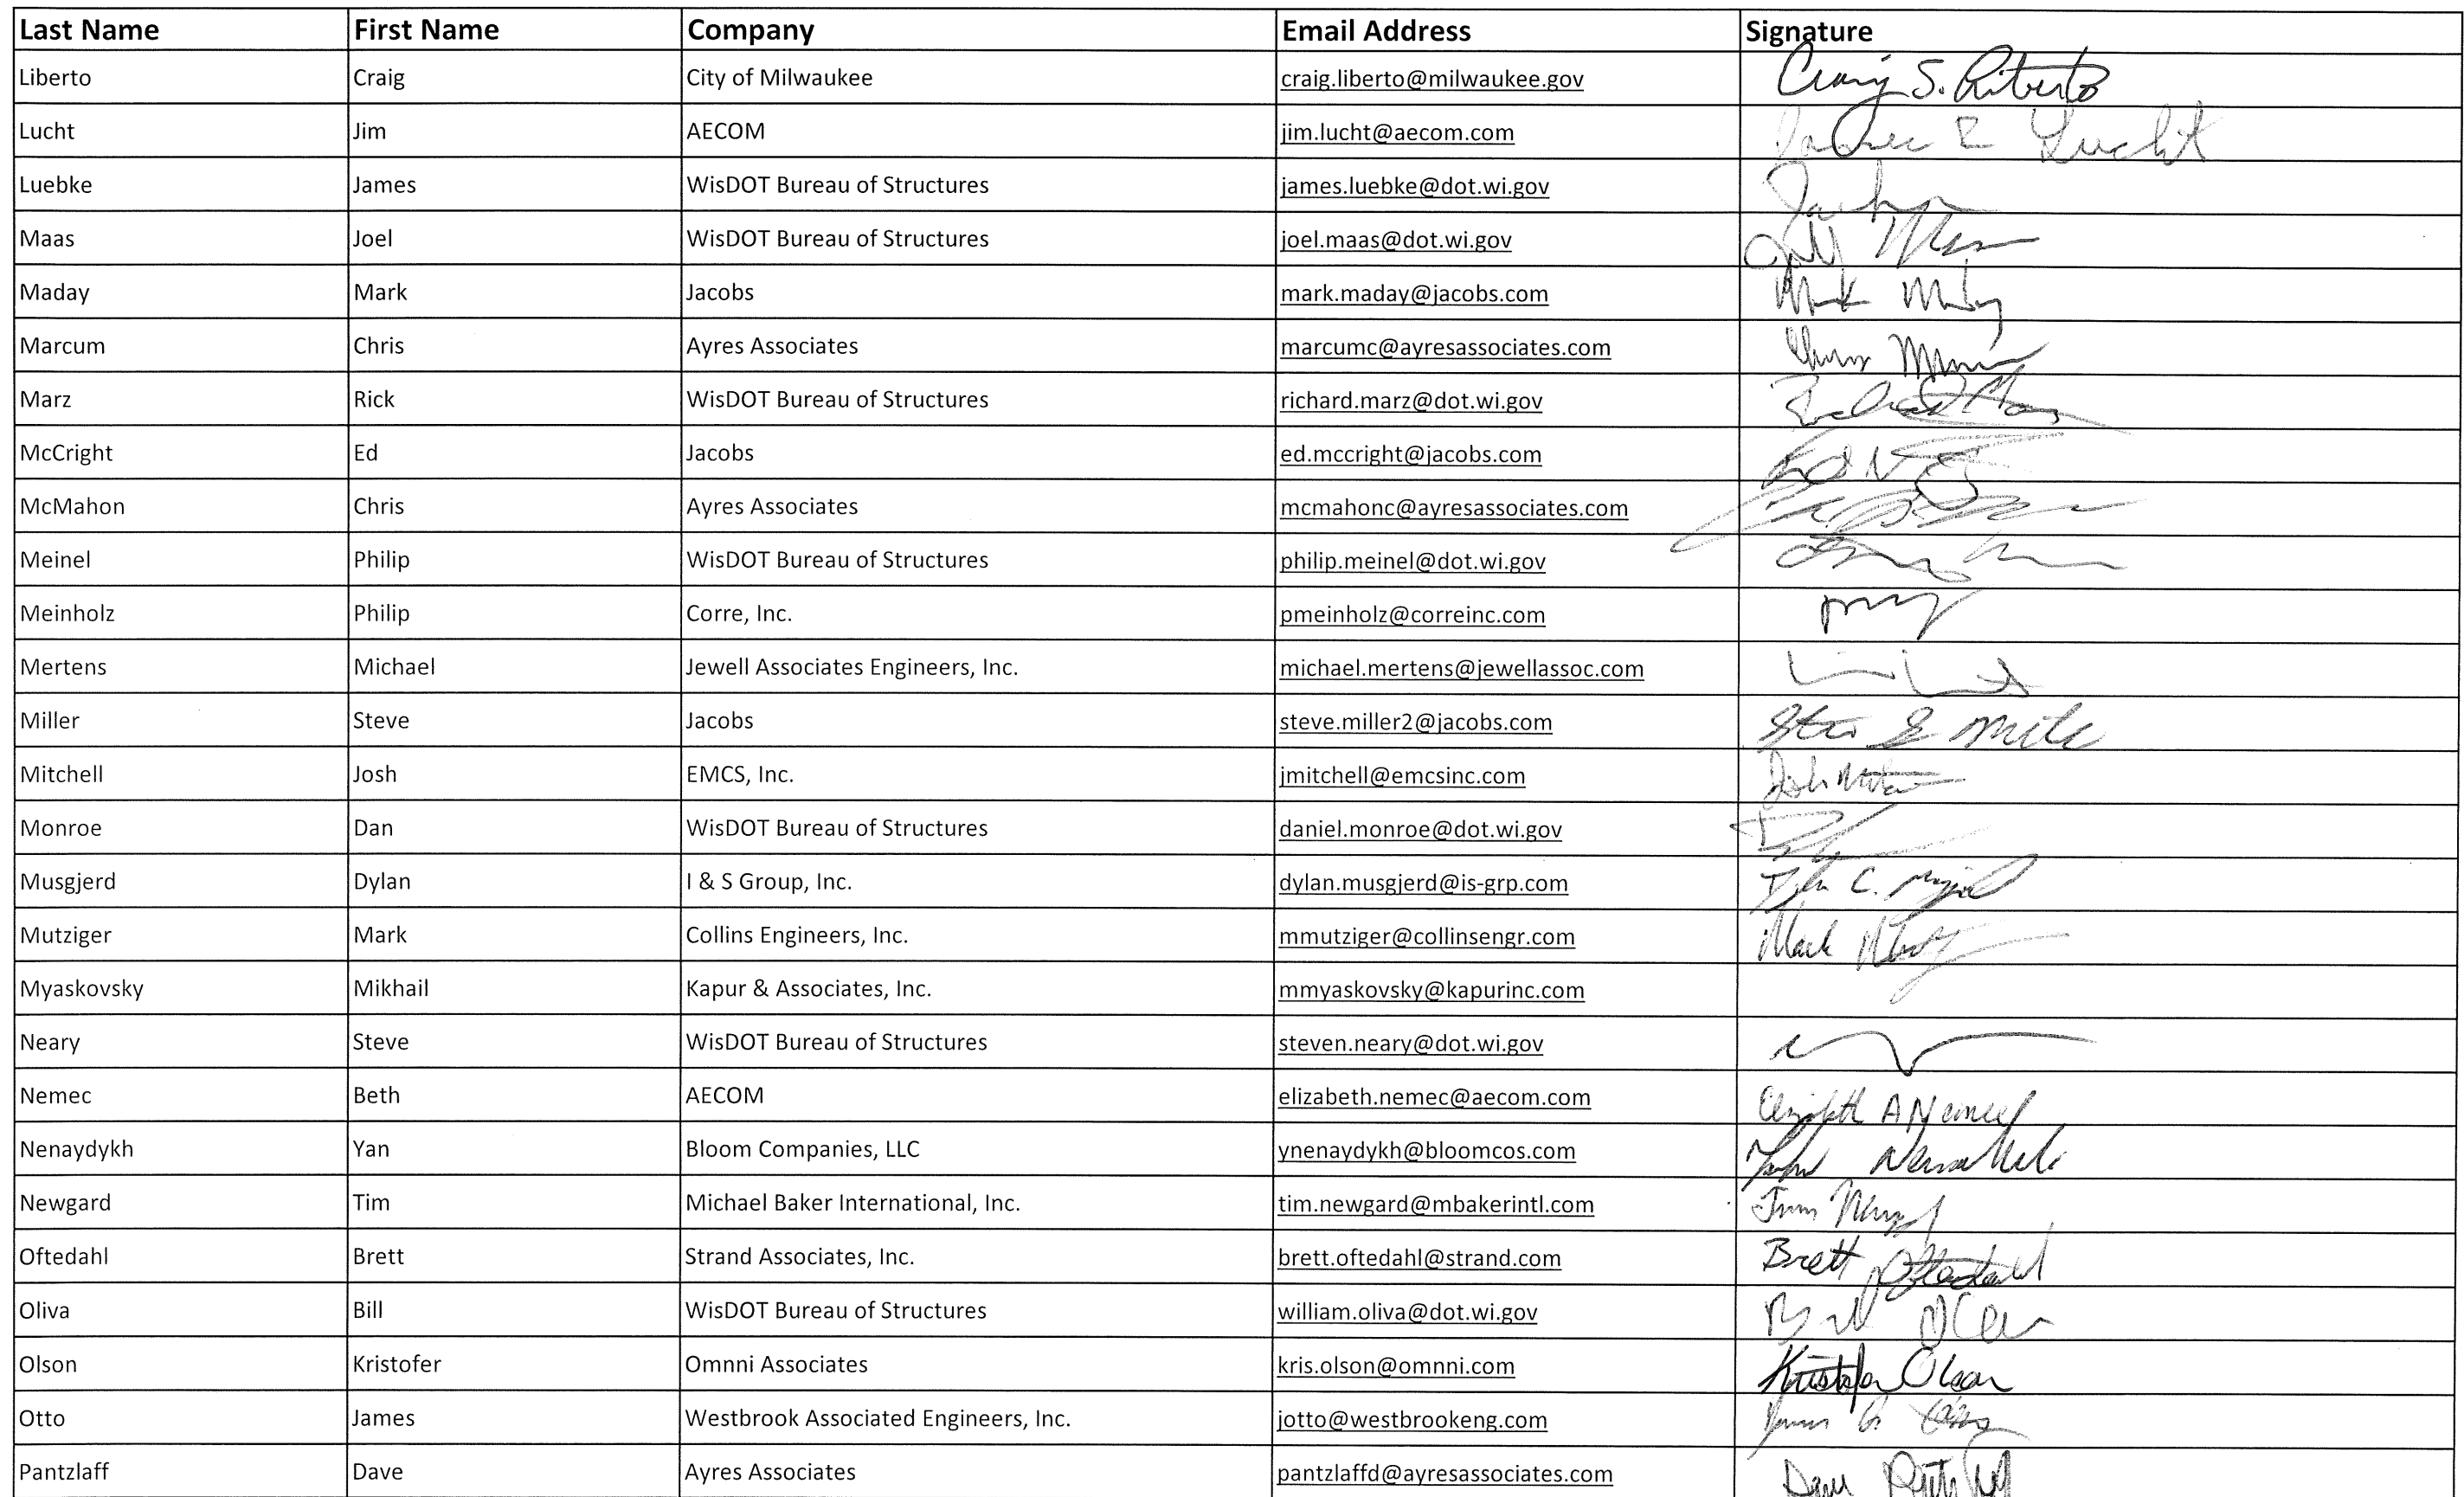 Last Name First Name Company Email Address Signature
Liberto Craig City of Milwaukee craig.liberto@milwaukee.gov Craig S. Liberto
Lucht Jim AECOM jim.lucht@aecom.com Lucht
Luebke James WisDOT Bureau of Structures james.luebke@dot.wi.gov
Maas Joel WisDOT Bureau of Structures joel.maas@dot.wi.gov
Maday Mark Jacobs mark.maday@jacobs.com Mark
Marcum Chris Ayres Associates marcumc@ayresassociates.com
Marz Rick WisDOT Bureau of Structures richard.marz@dot.wi.gov
McCright Ed Jacobs ed.mccright@jacobs.com
McMahon Chris Ayres Associates mcmahonc@ayresassociates.com
Meinel Philip WisDOT Bureau of Structures philip.meinel@dot.wi.gov
Meinholz Philip Corre, Inc. pmeinholz@correinc.com
Mertens Michael Jewell Associates Engineers, Inc. michael.mertens@jewellassoc.com
Miller Steve Jacobs steve.miller2@jacobs.com
Mitchell Josh EMCS, Inc. jmitchell@emcsinc.com
Monroe Dan WisDOT Bureau of Structures daniel.monroe@dot.wi.gov
Musgjerd Dylan I & S Group, Inc. dylan.musgjerd@is-grp.com
Mutziger Mark Collins Engineers, Inc. mmutziger@collinsengr.com Mark
Myaskovsky Mikhail Kapur & Associates, Inc. mmyaskovsky@kapurinc.com
Neary Steve WisDOT Bureau of Structures steven.neary@dot.wi.gov
Nemec Beth AECOM elizabeth.nemec@aecom.com Elizabeth A Nemec
Nenaydykh Yan Bloom Companies, LLC ynenaydykh@bloomcos.com
Newgard Tim Michael Baker International, Inc. tim.newgard@mbakerintl.com
Oftedahl Brett Strand Associates, Inc. brett.oftedahl@strand.com Brett Oftedahl
Oliva Bill WisDOT Bureau of Structures william.oliva@dot.wi.gov
Olson Kristofer Omnni Associates kris.olson@omnni.com Kristofer Olson
Otto James Westbrook Associated Engineers, Inc. jotto@westbrookeng.com
Pantzlaff Dave Ayres Associates pantzlaffd@ayresassociates.com